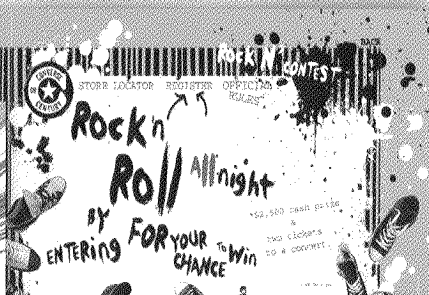 BACK
ROCK N' CONTEST
CONVERSE CENTURY
STORE LOCATOR REGISTER OFFICIAL RULES
Rock n
Roll All night
BY
ENTERing FOR YOUR CHANCE To Win
$2,500 cash prize
&
two tickets
to a concert